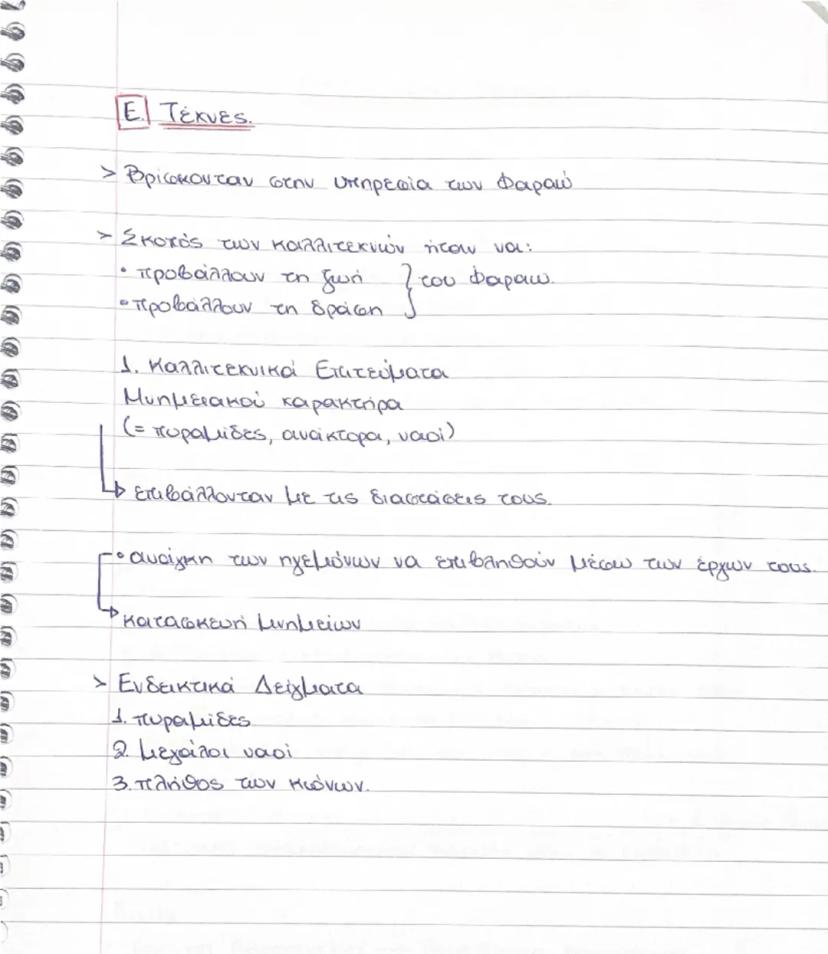 Ε. Τέχνες.
> Βρίσκονταν στην υπηρεσία των Φαραώ
> Σκοπός των καλλιτεχνών ήταν να:
• προβάλλουν τη ζωή } του Φαραώ.
• προβάλλουν τη δράση
1. Καλλιτεχνικά Επιτεύματα
Μνημειακού χαρακτήρα
(= πυραμίδες, ανάκτορα, ναοί)
→ επιβάλλονταν με τις διαστάσεις τους.
• ανάγκη των ηγεμόνων να επιβληθούν μέσω των έργων τους.
→ κατασκευή μνημείων
> Ενδεικτικά Δείγματα
1. πυραμίδες
2. μεγάλοι ναοί
3. πλήθος των κιόνων.